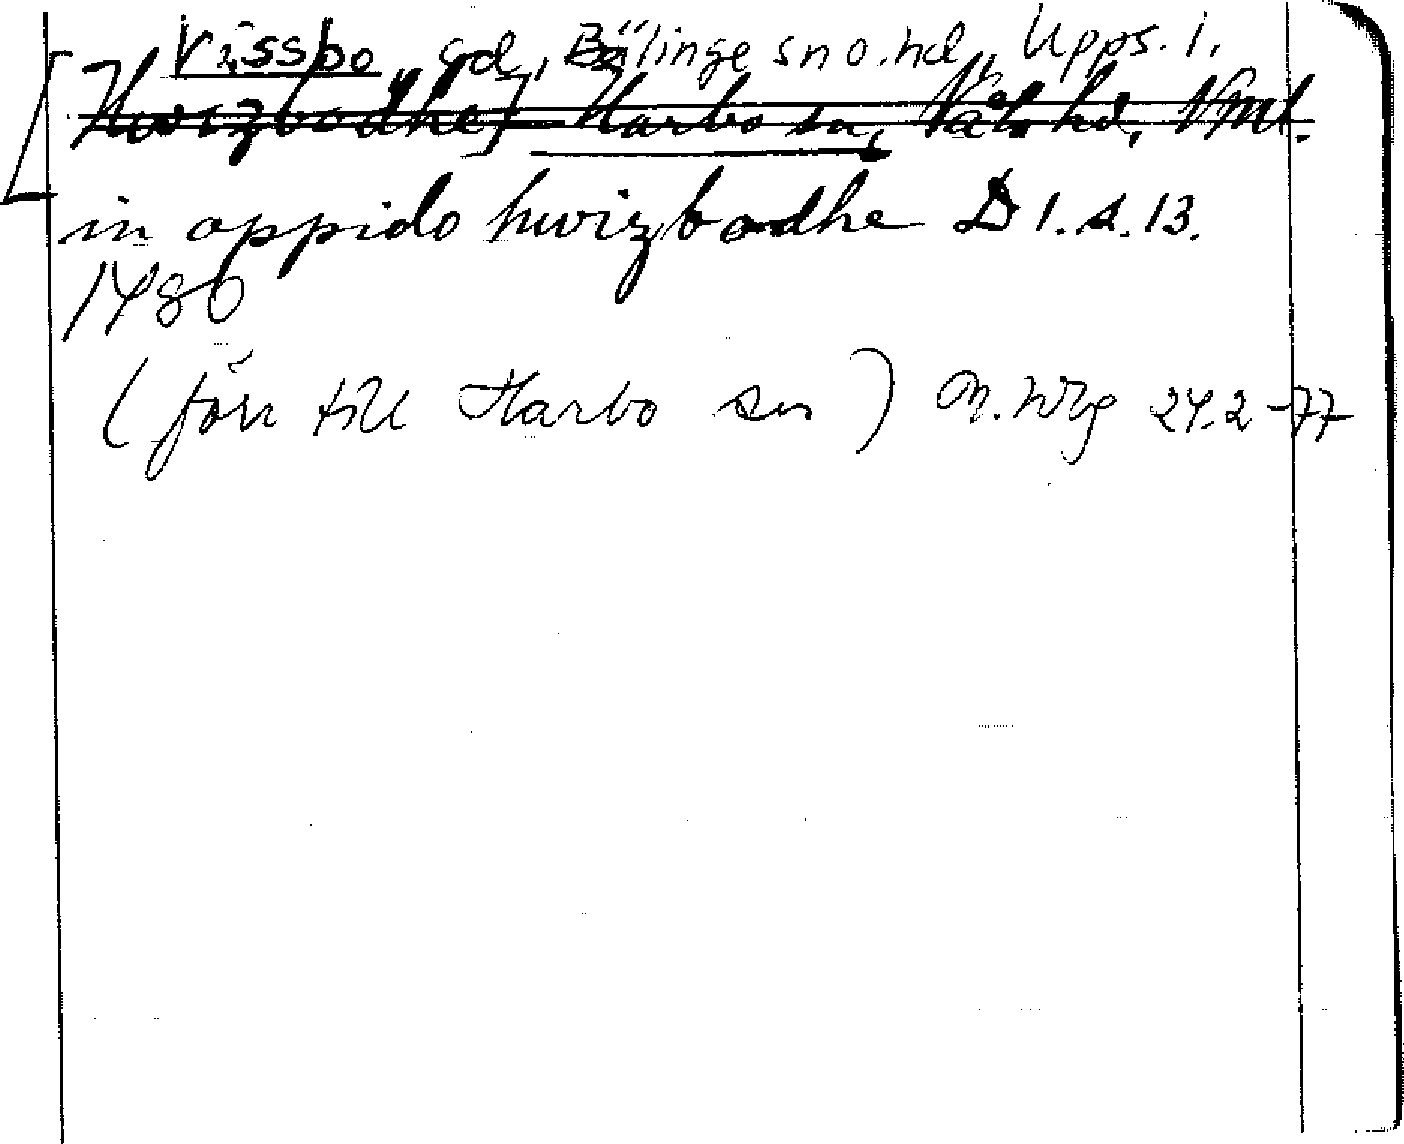 Vissbo, gd, Bälinge sn o. hd, Upps. l.
[Hwizbodhe] Harbo sn, Våla hd, Vml.
in oppido hwizbodhe D 1.4.13.
1486
(förr till Harbo sn) M.Wbg 24.2-77